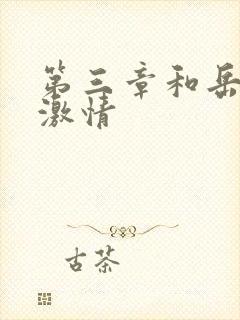 第三章和岳
激情
古茶